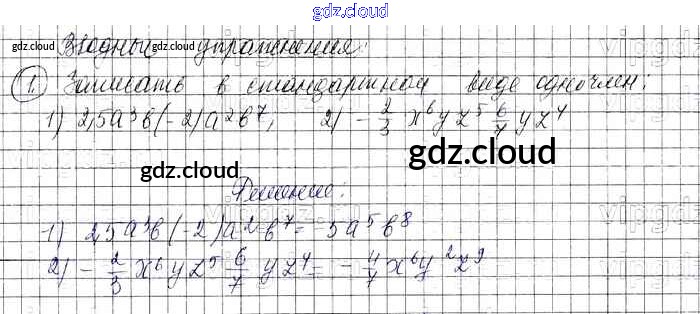 gdz.cloud
Вводные упражнения:
1. Записать в стандартном виде одночлен:
1) 2,5a³b(-2)a²b⁷; 2) -2/3 x⁶yz⁵ 6/7 yz⁴
gdz.cloud
gdz.cloud
Решение:
1) 2,5a³b(-2)a²b⁷ = -5a⁵b⁸
2) -2/3 x⁶yz⁵ 6/7 yz⁴ = -4/7 x⁶y²z⁹